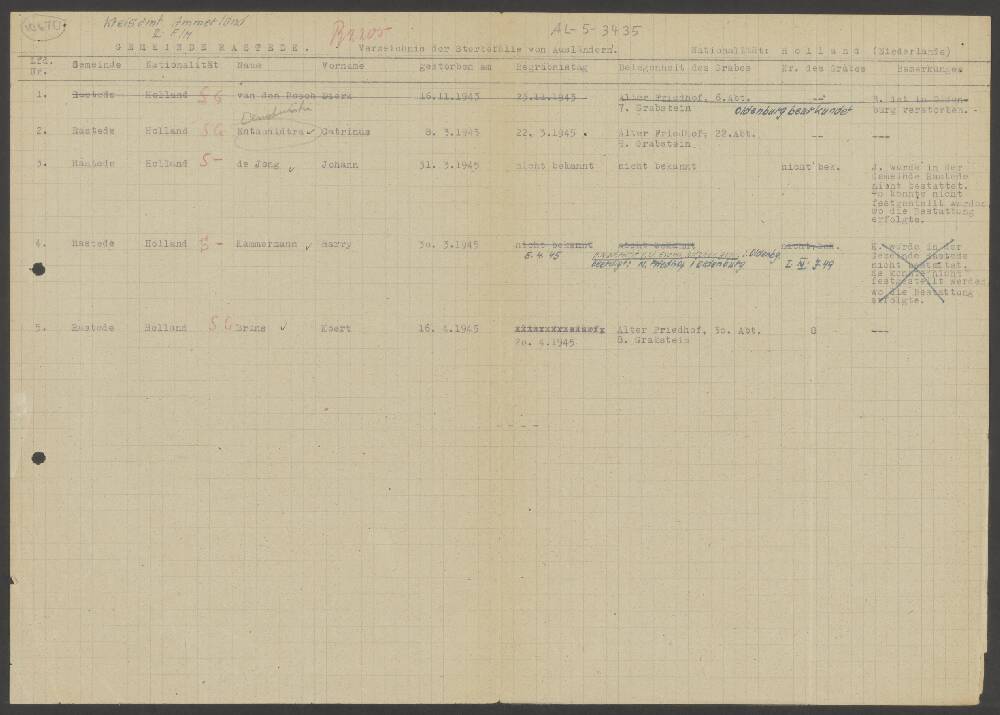 Kreisamt Ammerland
AL-5-3435
GEMEINDE RASTEDE. Verzeichnis der Sterbefälle von Ausländern. Nationalität: Holland (Niederlande)
Lfd. Nr. Gemeinde Nationalität Name Vorname gestorben am Begräbnistag Belegenheit des Grabes Nr. des Grabes Bemerkungen
1. Rastede Holland S G van den Bosch Dierk 16.11.1943 23.11.1943 Alter Friedhof, 6.Abt. -- B. ist in Olden-
7. Grabstein Oldenburg beurkundet burg verstorben.
2. Rastede Holland S G Catrinus 8. 3.1945 22. 3.1945 . Alter Friedhof, 22.Abt. -- ---
Grabstein
3. Rastede Holland S - de Jong Johann 31. 3.1945 nicht bekannt nicht bekannt nicht bek. J. wurde in der
Gemeinde Rastede
nicht bestattet.
Es konnte nicht
festgestellt werden,
wo die Bestattung
erfolgte.
4. Rastede Holland S - Kammermann Harry 30. 3.1945 nicht bekannt nicht bekannt nicht bek. K. wurde in der
6.4.45 i. Oldenbg. Gemeinde Rastede
beerdigt: N. Friedhof i Oldenburg nicht bestattet.
Es konnte nicht
festgestellt werden,
wo die Bestattung
erfolgte.
5. Rastede Holland S G Bruns Koert 16. 4.1945 Alter Friedhof, 30. Abt. 8 ---
20. 4.1945 8. Grabstein
- - - -